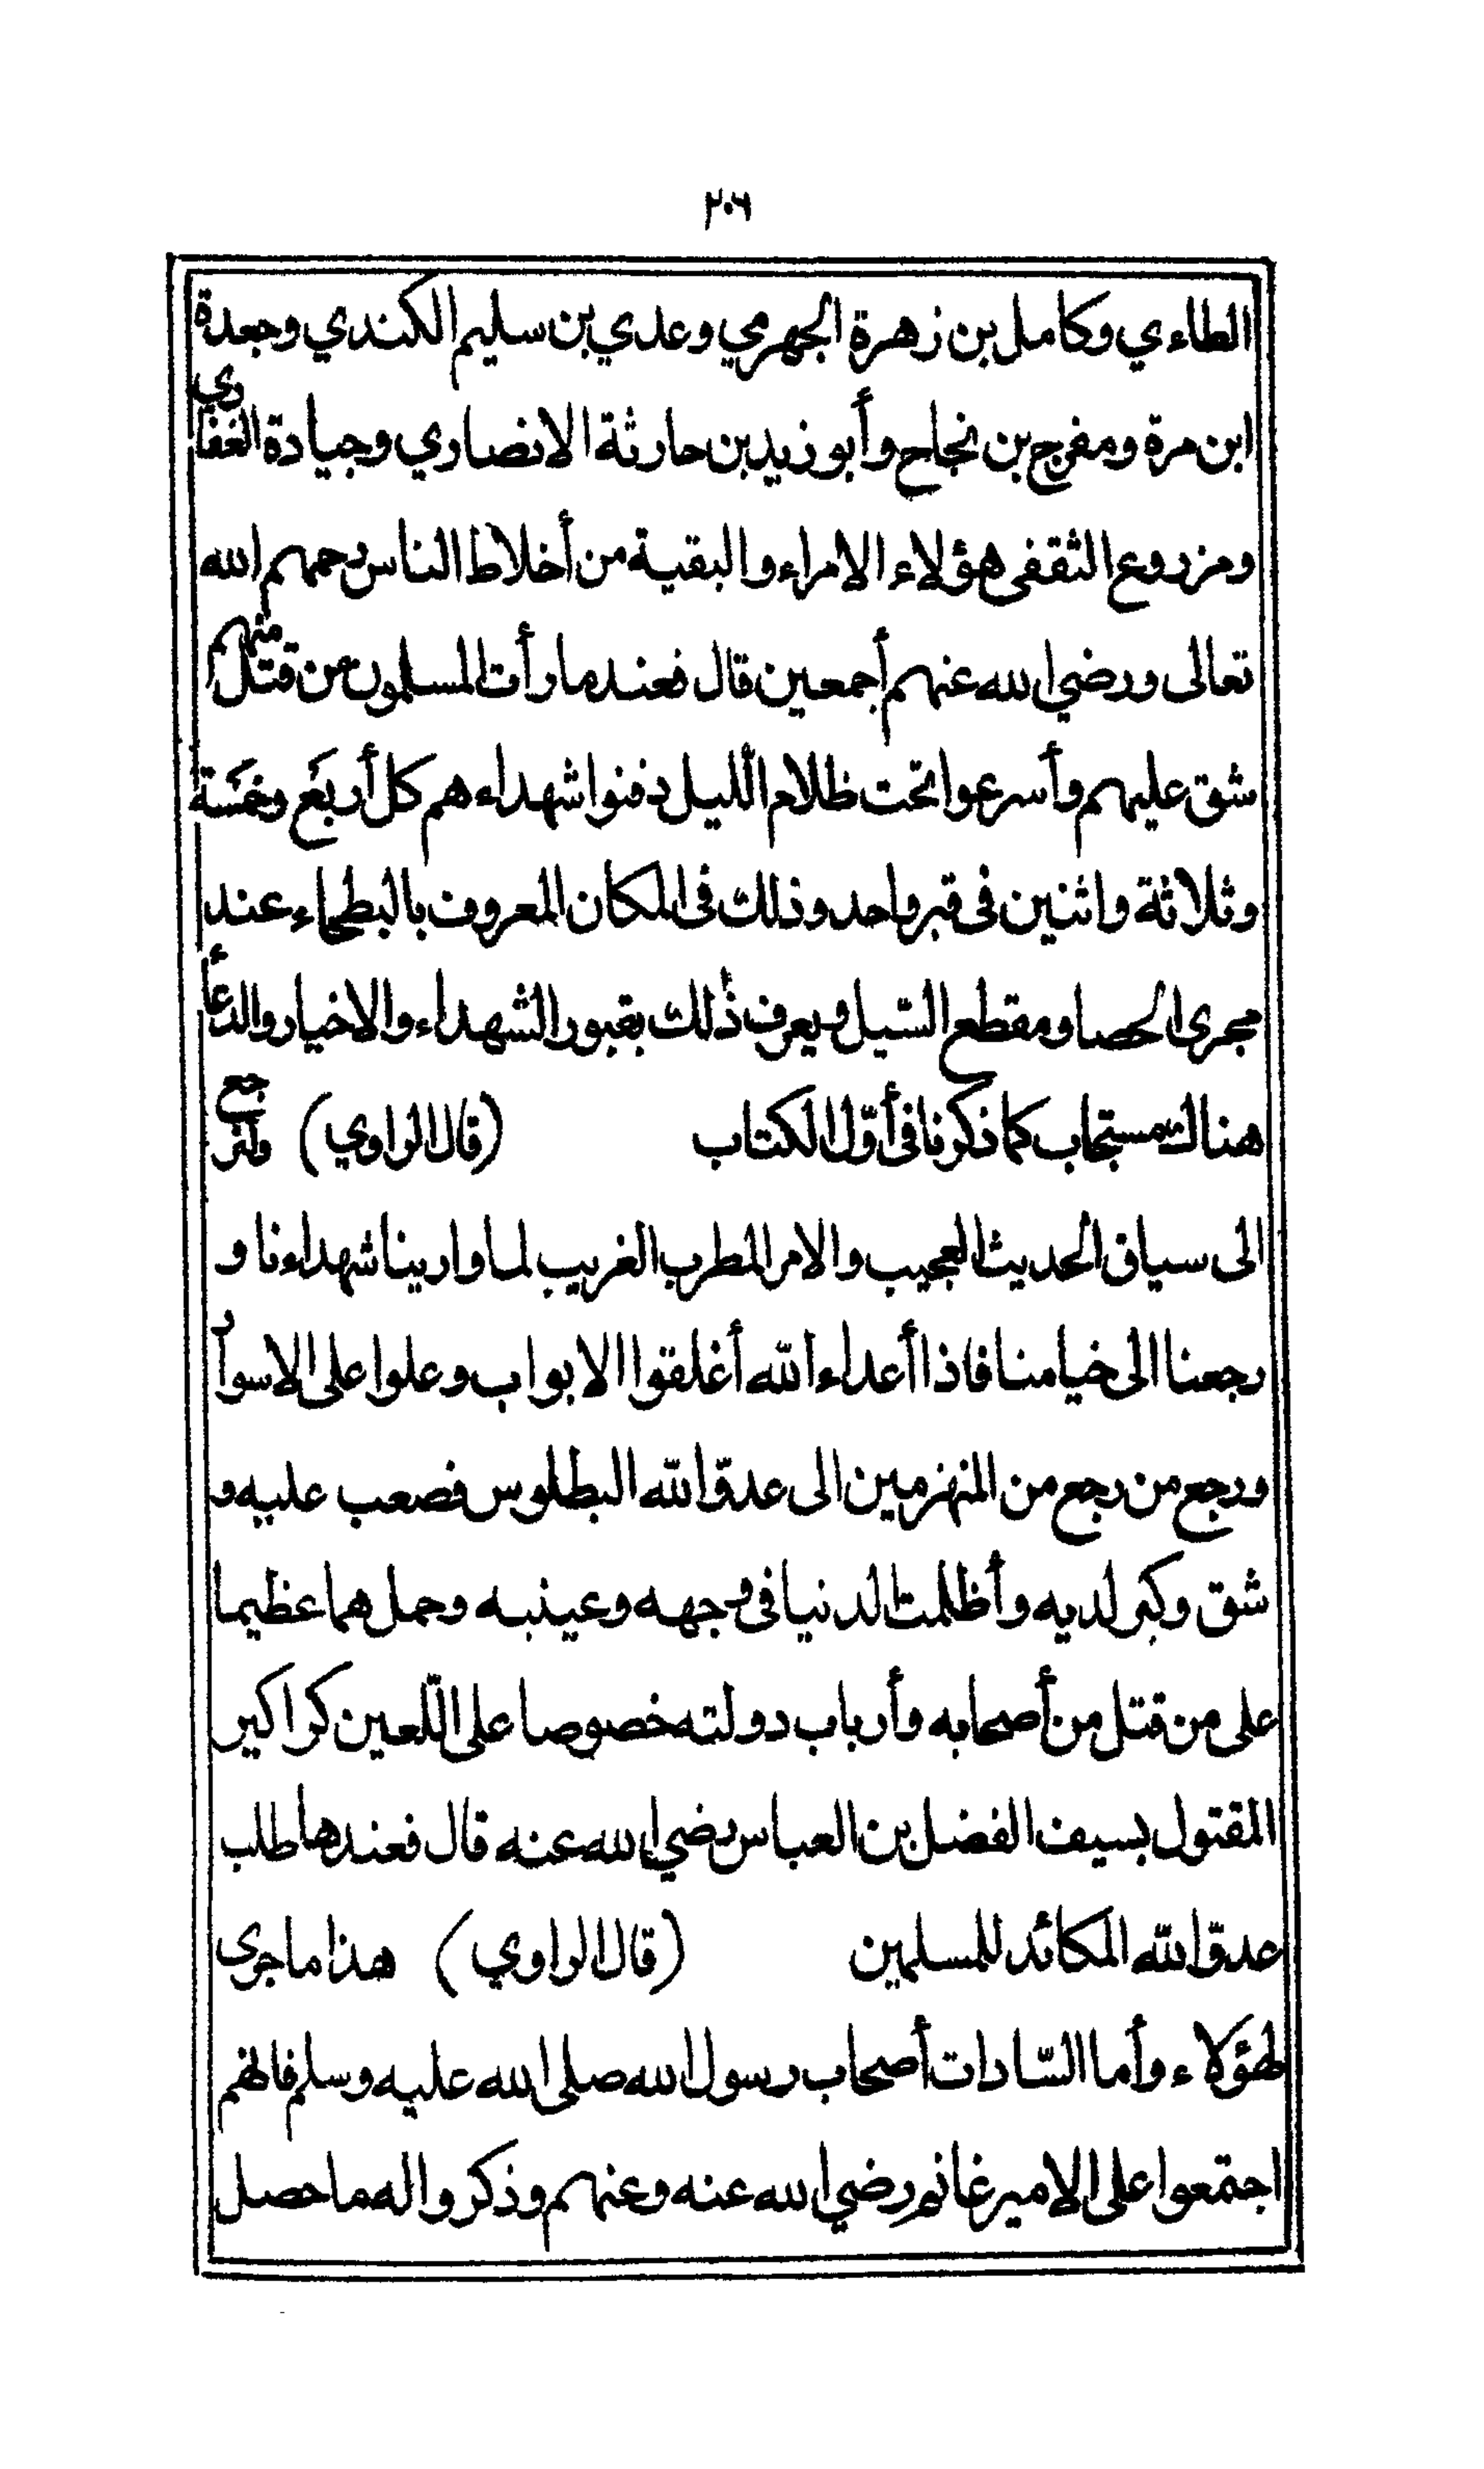 ٢٠٦
الطاءي وكامل بن زهرة الجهرمي وعدي بن سليم الكندي وجعدة
ابن مرة ومفرج بن نجاح وأبو زيد بن حارثة الانصاري وجيادة الغفاري
ومزروع الثقفى هؤلاء الامراء والبقية من أخلاط الناس رحمهم الله
تعالى ورضي الله عنهم أجمعين قال فعند ما رأت المسلمون من قتل منهم
شق عليهم وأسرعوا تحت ظلام الّليل دفنوا شهداءهم كل أربَع وخمَسة
وثلاثة واثنين فى قبر واحد وذلك فى المكان المعروف بالبطحاء عند
مجرى الحصا ومقطع السّيل ويعرف ذٰلك بقبور الشهداء والاخيار والدعاء
هنالك مستجاب كما ذكرنا فى أوّل الكتاب (قال الراوي) ولنرجع
الى سياق الحديث العجيب والامر المطرب الغريب لما وارينا شهداءنا و
رجعنا الى خيامنا فاذا أعداء الله أغلقوا الابواب وعلوا على الاسوار
ورجع من رجع من المنهزمين الى عدوّ الله البطلوس فصعب عليه و
شق وكبر لديه وأظلمت الدنيا فى وجهه وعينيه وحمل هما عظيما
على من قتل من أصحابه وأرباب دولته خصوصا على الّلعين كراكير
المقتول بسيف الفضل بن العباس رضي الله عنه قال فعندها طلب
عدوّ الله المكائد للمسلمين (قال الراوي) هذا ما جرى
لهؤلاء وأما السّادات أصحاب رسول الله صلى الله عليه وسلم فانهم
اجتمعوا على الامير غانم رضي الله عنه وعنهم وذكروا له ما حصل